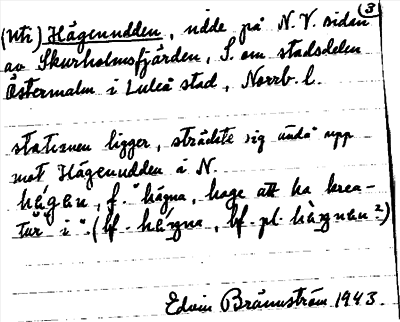 (Uti) Hägenudden, udde på N.V. sidan (3)
av Skurholmsfjärden, S. om stadsdelen
Östermalm i Luleå stad, Norrb. l.
stationen ligger, sträckte sig ända upp
mot Hägenudden i N.
hägen, f. "hägna, hage att ha krea-
tur i". (bf. hägna, bf. pl. hägnen?)
Edvin Brännström 1943.